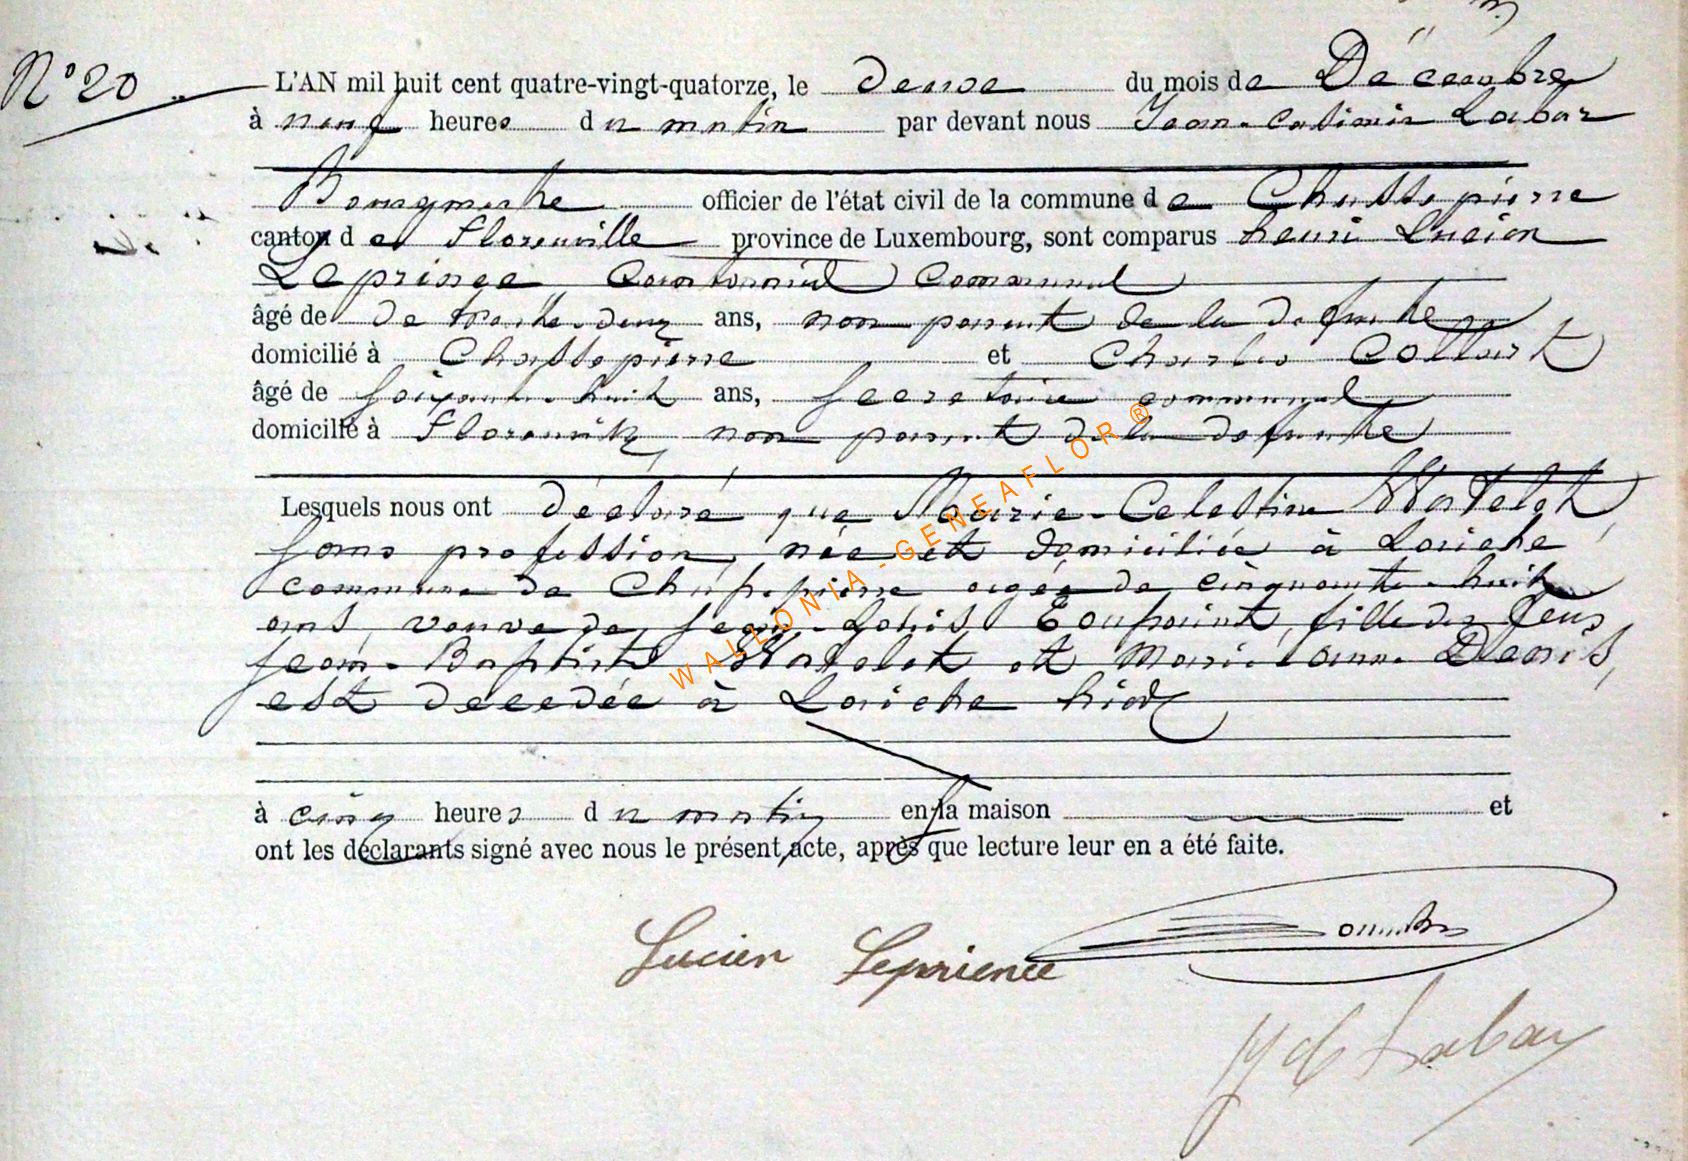 N° 20
L'AN mil huit cent quatre-vingt-quatorze, le deux du mois de Décembre
à neuf heures du matin par devant nous Jean-Casimir Labar
Bourgmestre officier de l'état civil de la commune de Chassepierre
canton de Florenville province de Luxembourg, sont comparus henri Lucien
Leprince Cantonnier Communal
âgé de de trente-deux ans, non parent de la défunte
domicilié à Chassepierre et Charles Collart
âgé de soixante-huit ans, secretaire communal
domicilié à Florenville, non parent de la defunte
Lesquels nous ont déclaré que Marie-Celestine Watelet
sans profession, née et domiciliée à Laiche
commune de Chassepierre agée de cinquante-huit
ans, veuve de Jean-Louis Toupaint, fille des feus
Jean-Baptiste Watelet et Marie-anne Denis,
est decedée à Laiche hier
à cinq heures du matin en sa maison et
ont les déclarants signé avec nous le présent acte, après que lecture leur en a été faite.
Lucien Leprience
J C Labar
WALLONIA-GENEAFLOR®